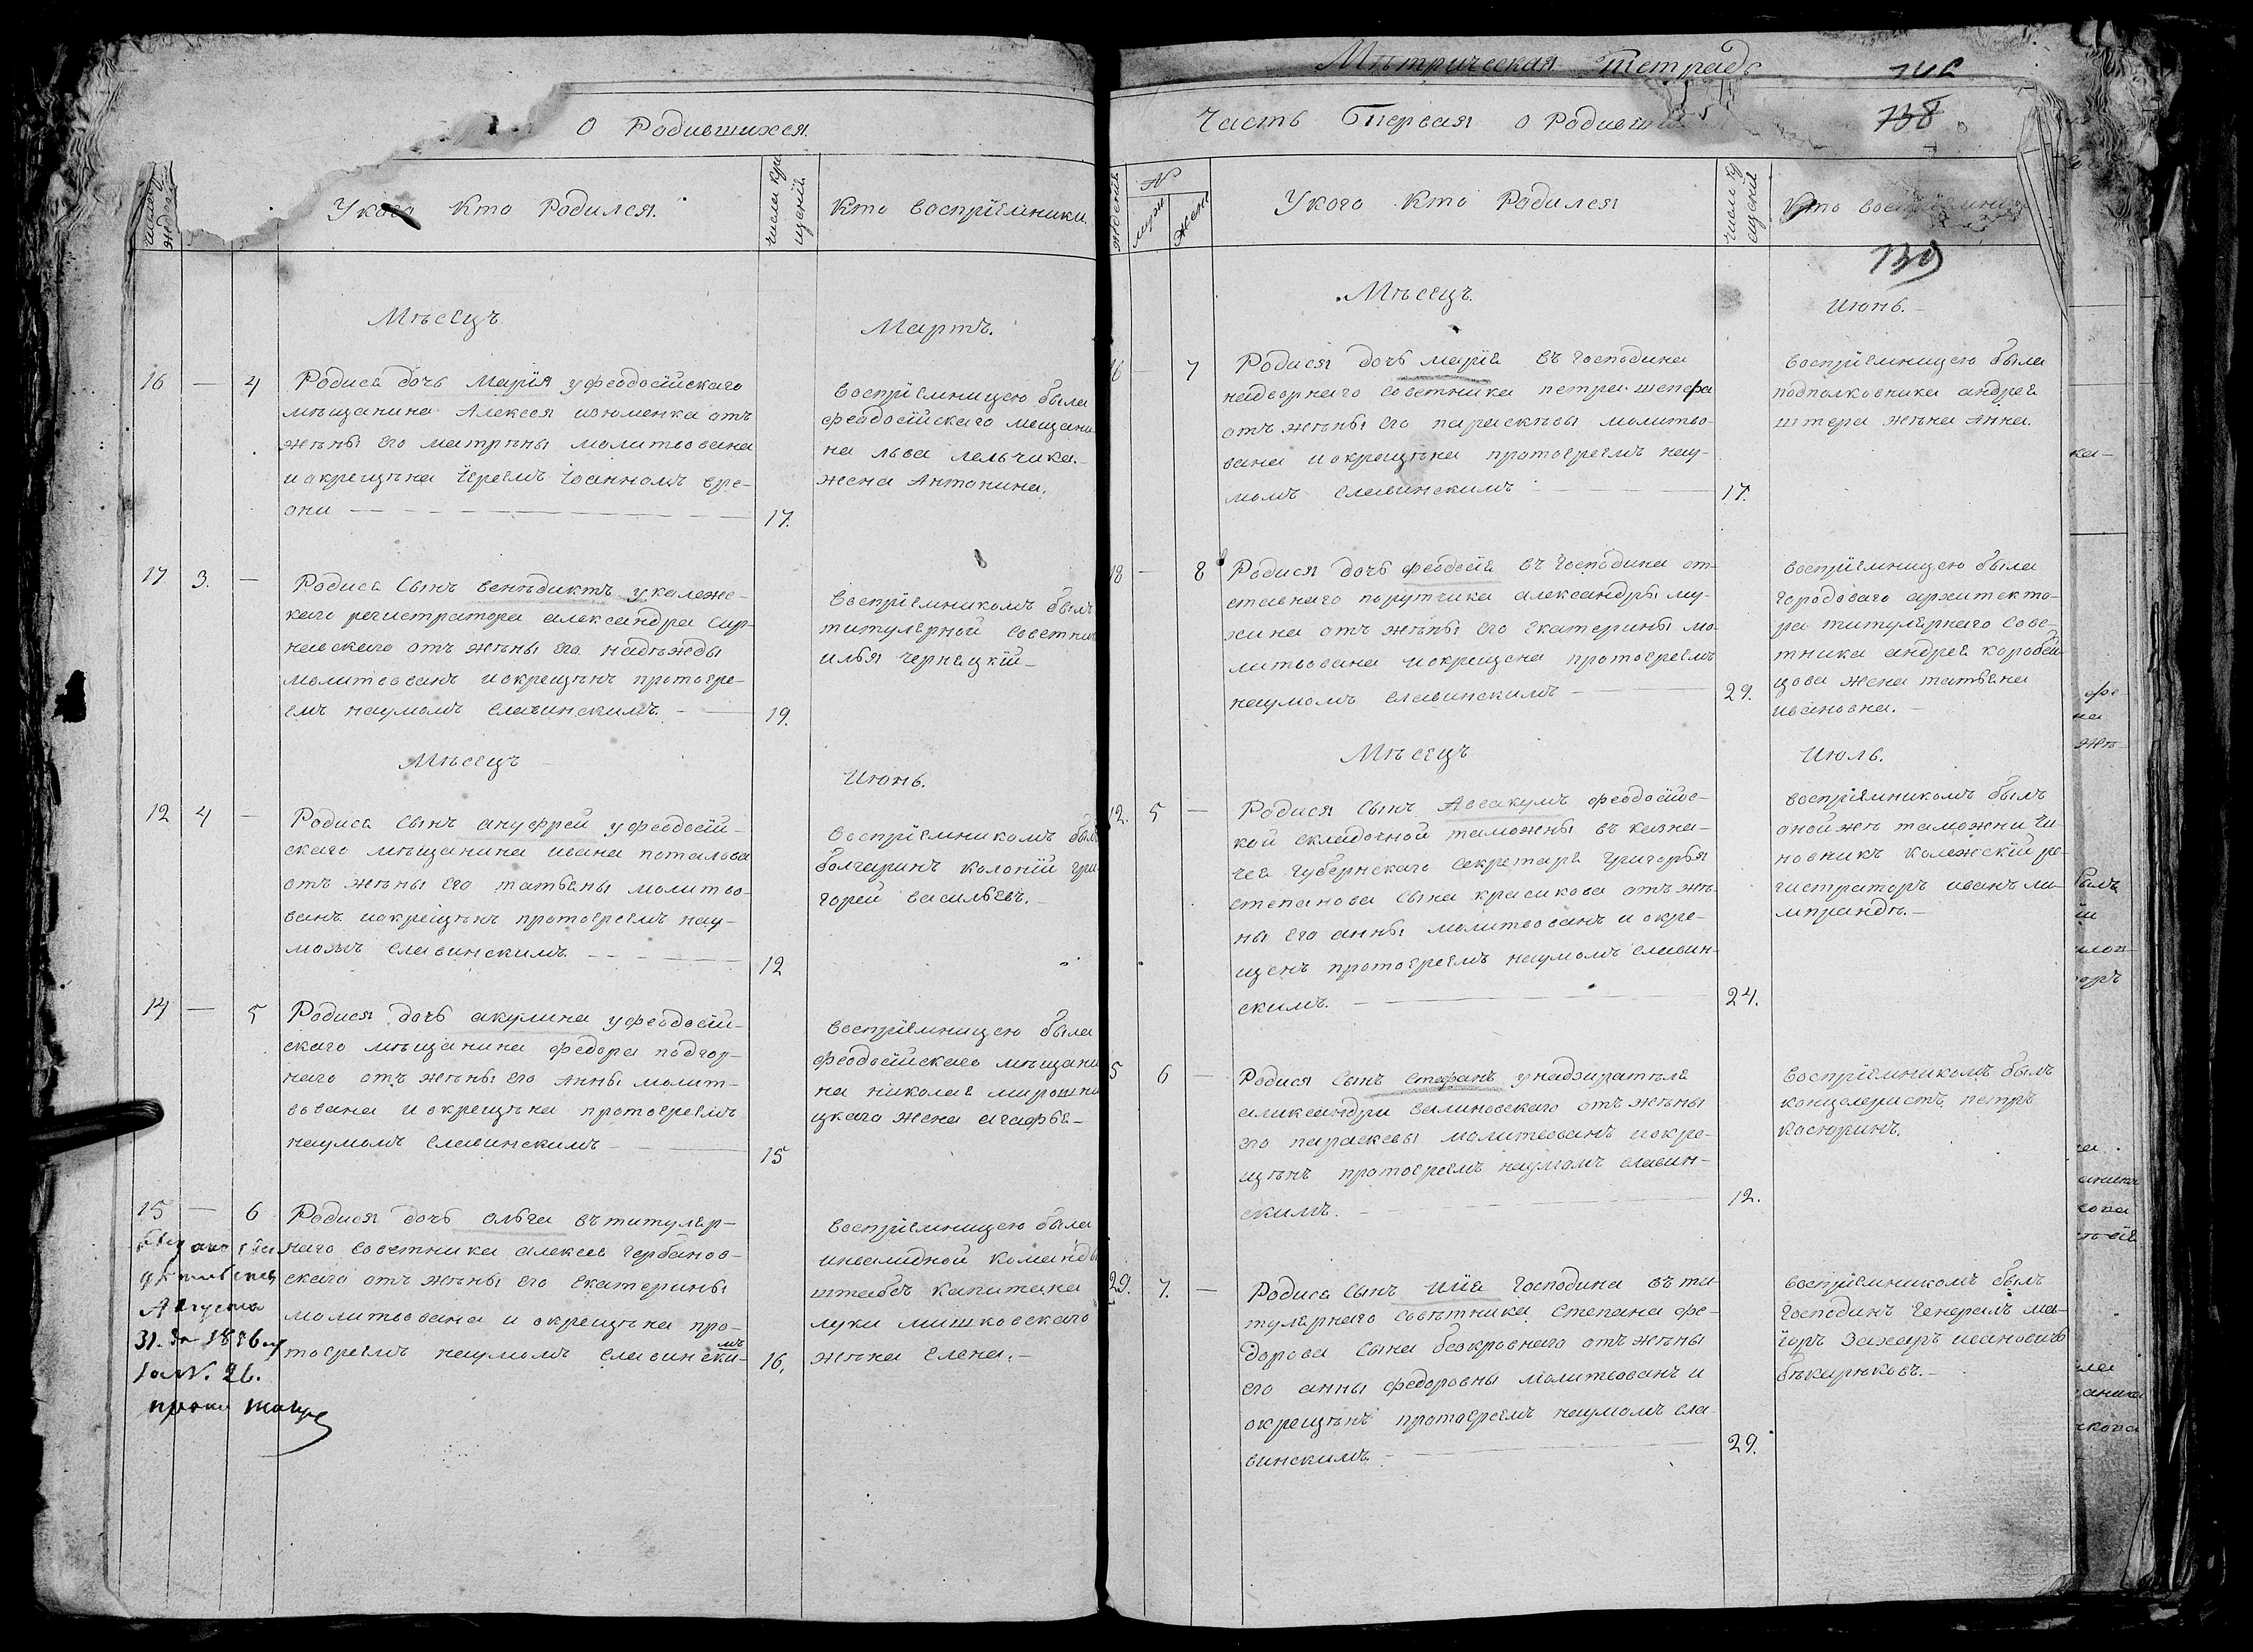 О Родившихся.
У кого Кто Родился.
Кто воспріемники.
Мѣсецъ
Мартъ.
16 — 4
Родиса дочь Марія уфеодосійскаго
мѣщанина Алексея изюменка отъ
жѣны его матрѣны молитвована
иокрещѣна Іереемъ Іоанномъ вре-
они
17.
воспріемницею была
феодосійскаго мещани
на льва лельчика
жена Антонина.
17 3. —
Родиса Сынъ венѣдиктъ уколеже-
каго регистратора александра Сар-
навскаго отъ жѣны его надѣжды
молитвованъ иокрещѣнъ протоере-
емъ наумомъ славинскимъ.
19.
воспріемникомъ былъ
титулярной советник
илья чернецкій
Мѣсецъ
Июнь.
12 4 —
Родиса Сынъ ануфрей уфеодосій-
скаго мѣщанина ивана поталова
отъ жѣны его татьяны молитво-
ванъ иокрещѣнъ протоереемъ нау-
момъ славинскимъ
12
воспріемникомъ былъ
болгаринъ колоніи гри
горей васильевъ.
14 — 5
Родися дочь акулина уфеодосій-
скаго мѣщанина федора подгор-
наго отъ жѣны его Анны молит-
вована иокрещѣна протоереемъ
наумомъ славинскимъ
15
воспріемницею была
феодосійскаго мѣщани
на николае мирошни
цкаго жена агафья
15 — 6
Родися дочь ольга вътитуляр-
наго советника алексея гербанов-
скаго отъ жѣны его екатерины
молитвована и окрещѣна про-
тоереемъ наумомъ славински-
мъ
16.
воспріемницею была
инвалидной команды
штабъ капитана
луки мишковскаго
жѣна Елена.
Августа
31.
26.
Мѣтрическая тетрадь
738
Часть Первая о Родивши
739
№
муж
жен
У кого Кто Родился
Кто воспріемники
Мѣсецъ.
Июнь.
16 — 7
Родися дочь маріе въ господина
надворнаго советника петра шепфа
отъ жѣны его параскѣвы молитво-
вана иокрещѣна протоереемъ нау-
момъ славинскимъ
17.
воспріемницею была
подполковника андрея
штера жѣна Анна.
18 — 8
Родися дочь феодосіе въ господина от-
ставнаго порутчика александры му-
хина отъ жѣны его екатерины мо-
литвована иокрещена протоереемъ
наумомъ славинскимъ
29.
воспріемницею была
городоваго архитекто-
ра титулярнаго сове-
тника андрея коробей
цова жена татьяна
ивановна.
Мѣсецъ
Июль.
12. 5 —
Родися сынъ Аввакумъ феодосійс-
кой складочной таможны въ казна-
чея губернскаго Секретаря григорья
степанова сына красикова отъ жѣ-
ны его анны молитвованъ и окре-
щенъ протоереемъ наумомъ славин-
скимъ.
24.
воспріемникомъ былъ
оной жъ таможни чи-
новникъ колежскій ре-
гистраторъ иванъ ли-
мпрандъ.
5 6 —
Родися сынъ стефанъ унадзиратѣле
александра валиновскаго отъ жѣны
его параскевы молитвованъ иокре-
щѣнъ протоереемъ наумомъ славин-
скимъ.
12.
воспріемникомъ былъ
концеляристъ петръ
касюринъ.
29. 7. —
Родиса Сынъ иліе господина въ ти
тулярнаго совѣтника степана фе-
дорова сына безкровнаго отъ жѣны
его анны федоровны молитвованъ и
окрещѣнъ протоереемъ наумомъ сла-
винскимъ
29.
воспріемникомъ былъ
господинъ генералъ ма-
іоръ Захаръ ивановичь
бѣкарюковъ.